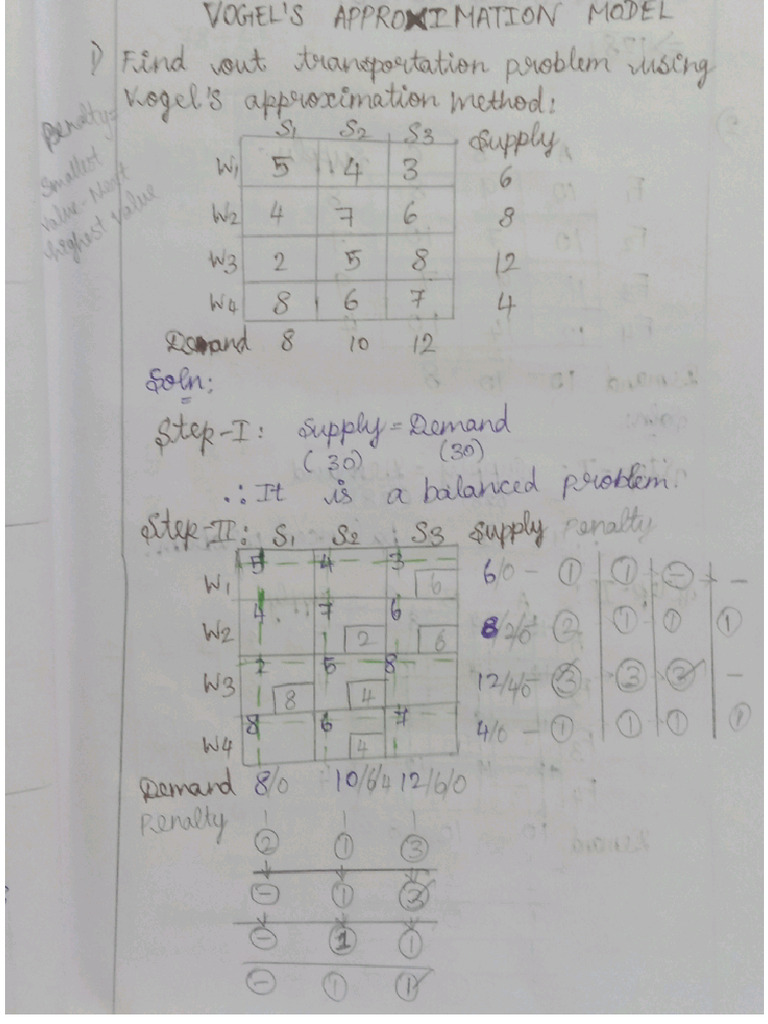 VOGEL'S APPROXIMATION MODEL
1) Find out transportation problem using
Vogel's approximation method:
Penalty=
Smallest
value - Next
highest value
S1 S2 S3 Supply
W1 5 4 3 6
W2 4 7 6 8
W3 2 5 8 12
W4 8 6 7 4
Demand 8 10 12
Soln:
Step-I: Supply = Demand
(30) (30)
∴ It is a balanced problem.
Step-II: S1 S2 S3 Supply Penalty
5 4 3
W1 6 6/0 - 1 1 - -
4 7 6
W2 2 6 8/2/0 - 2 1 1 1
2 5 8
W3 8 4 12/4/0 - 3 3 3 -
8 6 7
W4 4 4/0 - 1 1 1 1
Demand 8/0 10/6/4 12/6/0
Penalty
2 1 3
- 1 3
- 1 1
- 1 1